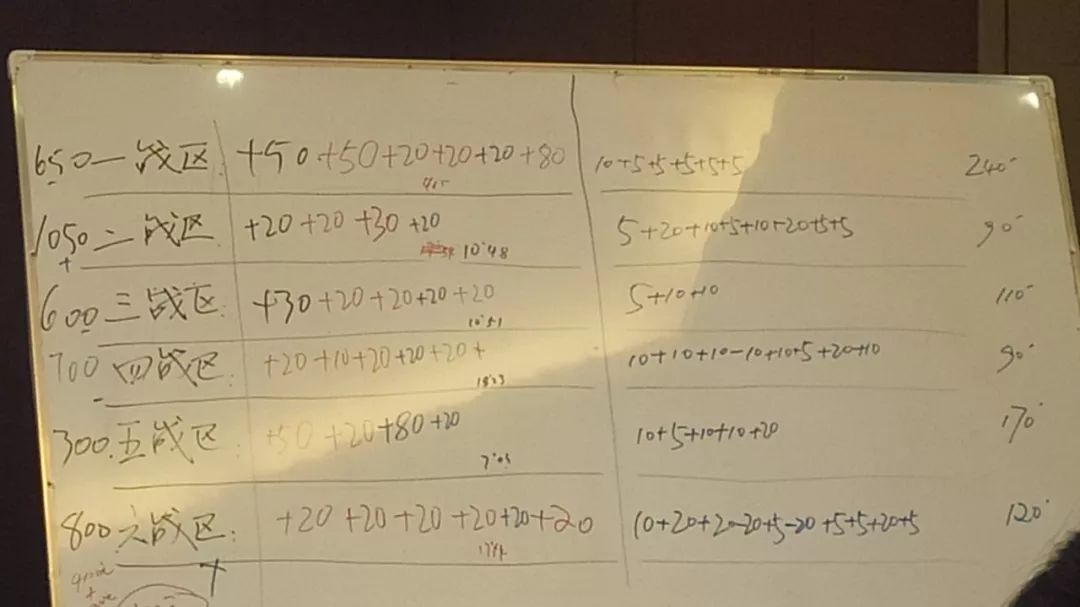 650 一战区: +50+50+20+20+20+80 10+5+5+5+5+5 240
1050 二战区: +20+20+30+20 5+20+10+5+10+20+5+5 90
10'48
600 三战区: +30+20+20+20+20 5+10+10 110
10'51
700 四战区: +20+10+20+20+20+ 10+10+10-10+10+5+20+10 90
300 五战区: +50+20+80+20 10+5+10+10+20 170
7'05
800 六战区: +20+20+20+20+20+20 10+20+20-20+5-20+5+5+20+5 120